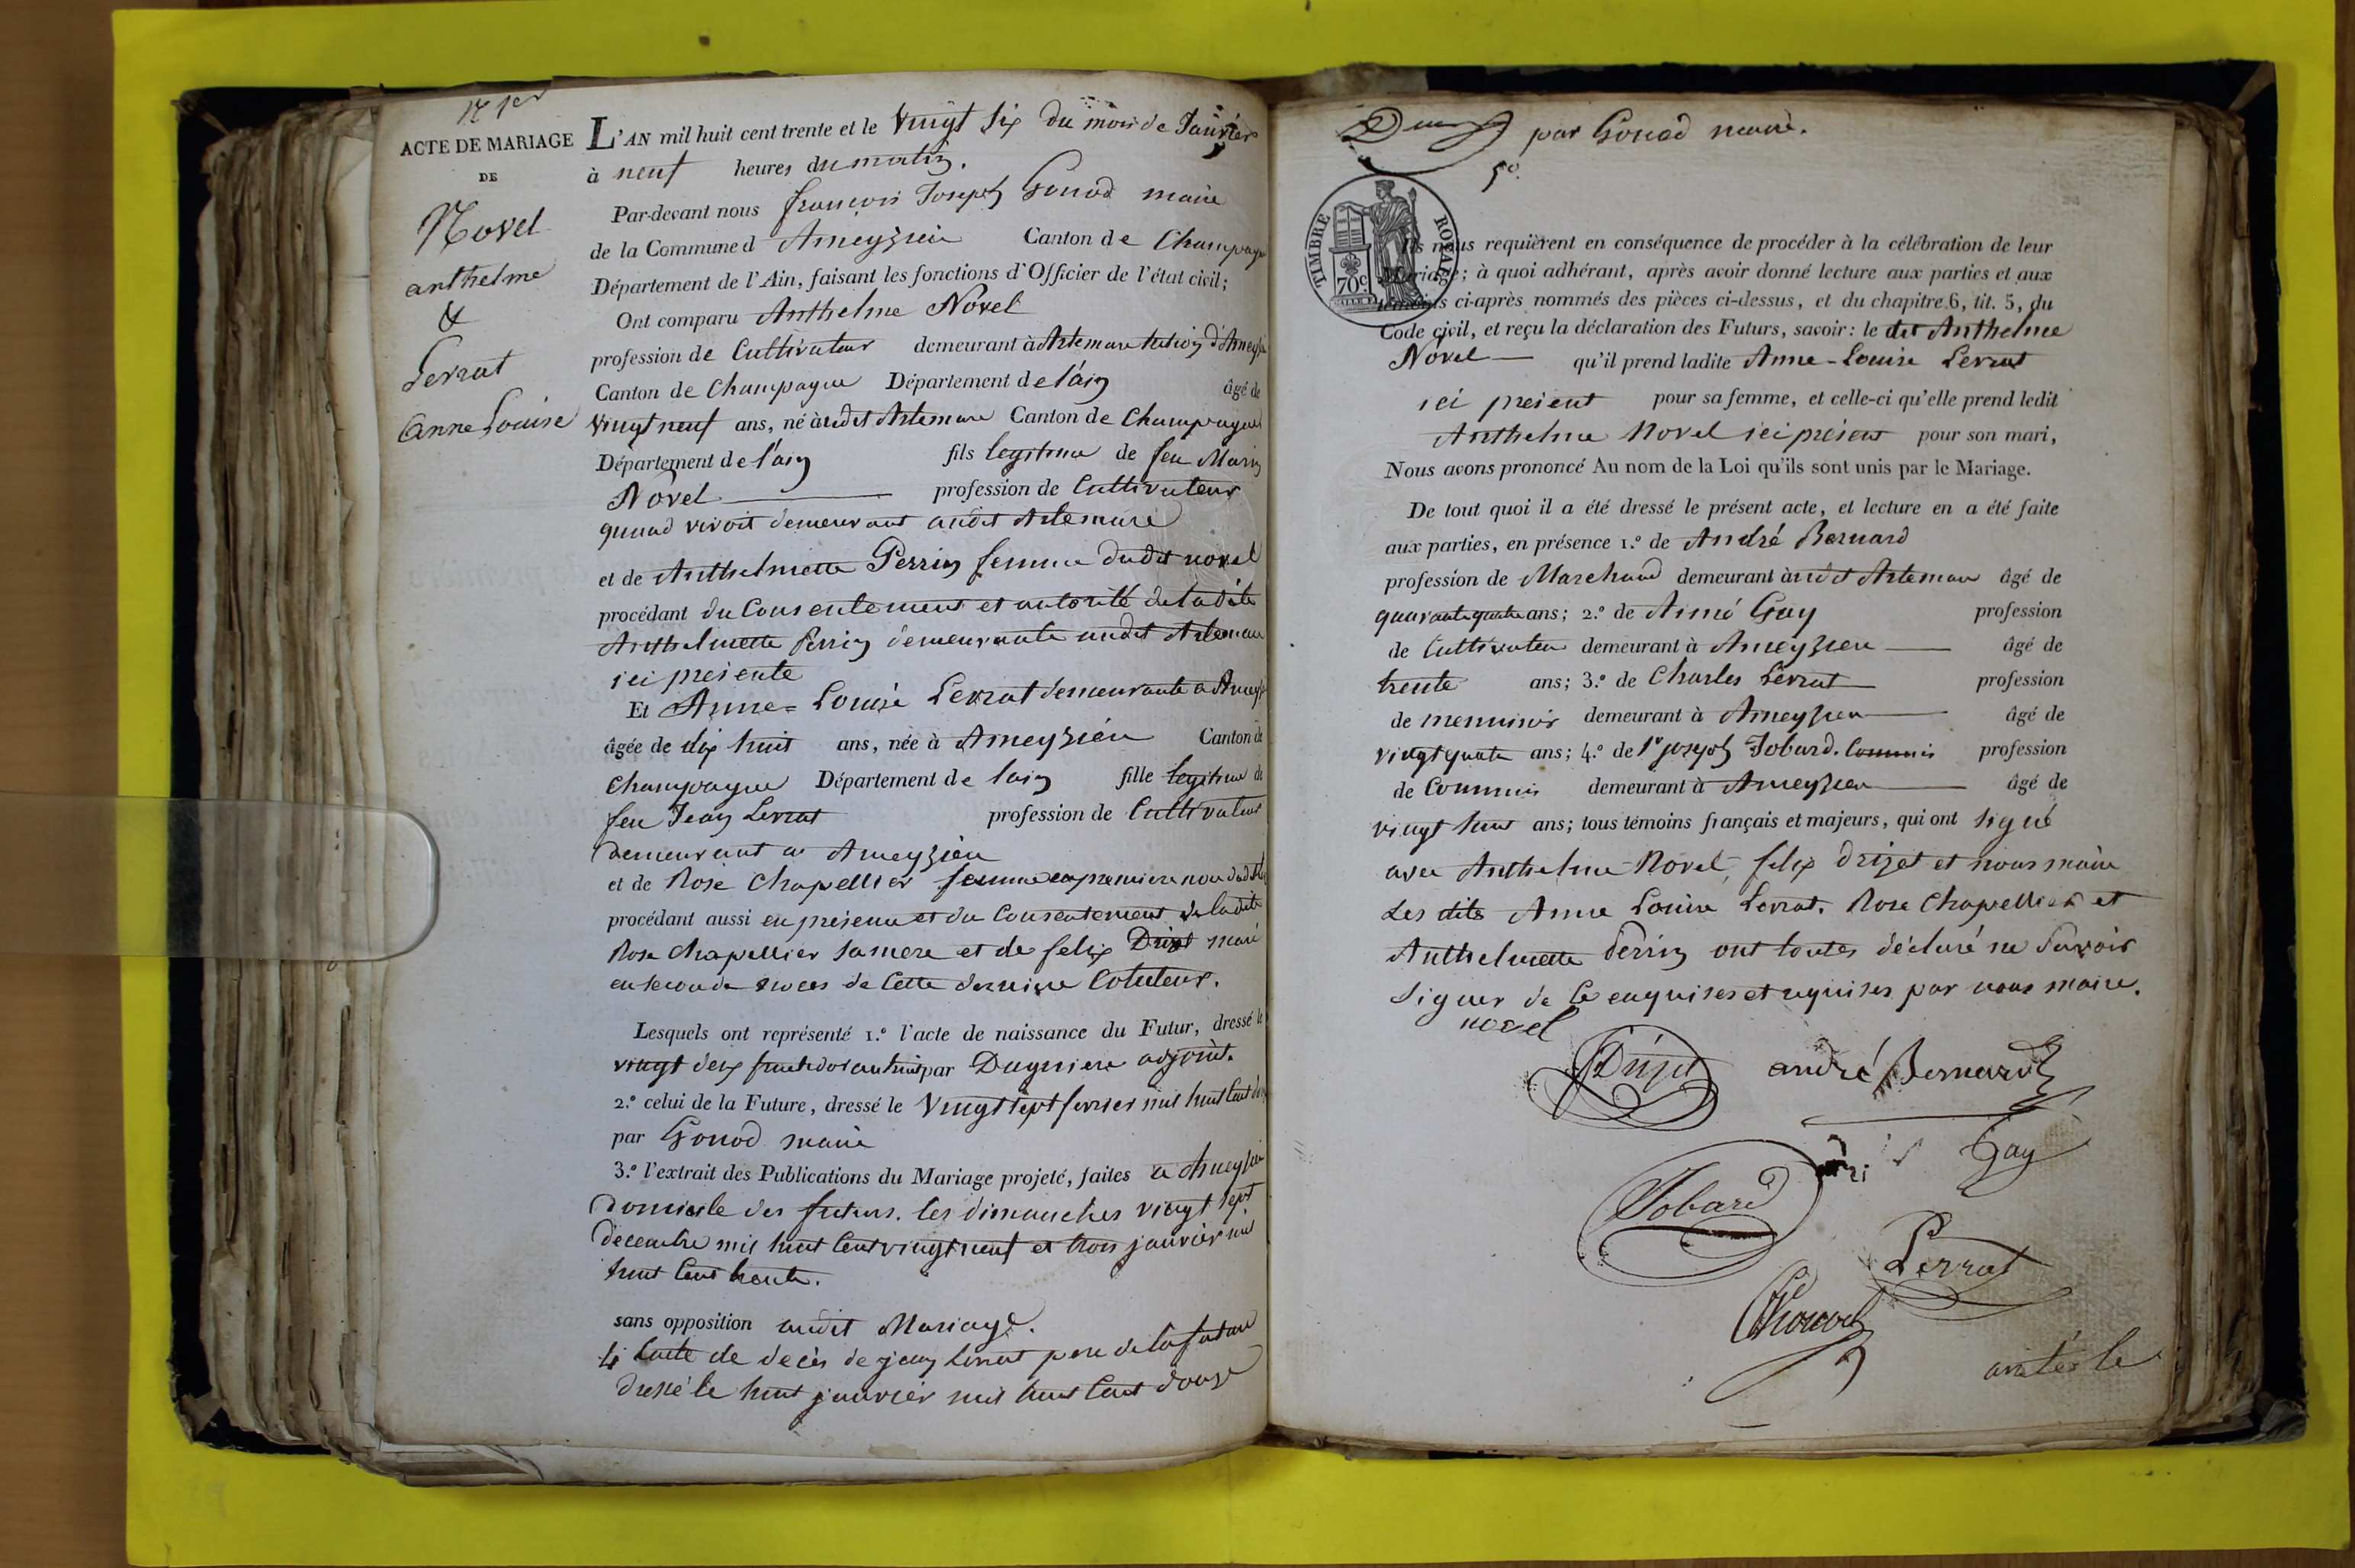 N 1er
ACTE DE MARIAGE
DE
Novel
anthelme
&
Lerrat
Anne Louise
L'AN mil huit cent trente et le Vingt six du mois de Janvier
à neuf heures du matin.
Par-devant nous françois Joseph Gonod maire
de la Commune d Ameyzieu Canton de Champagne
Département de l'Ain, faisant les fonctions d'Officier de l'état civil;
Ont comparu Anthelme Novel
profession de Cultivateur demeurant à Artemare d'Ameyzieu
Canton de Champagne Département de l'ain âgé de
vingt neuf ans, né audit Artemare Canton de Champagne
Département de l'ain fils legitime de feu Marin
Novel profession de Cultivateur
quand vivoit demeurant audit Artemare
et de Anthelmette Perrin femme dudit novel
procédant du Consentement et autorité de ladite
Anthelmette Perrin demeurante audit Artemare
ici presente
Et Anne-Louise Lerrat demeurante a Ameyz
âgée de dix huit ans, née à Ameyziéu Canton de
Champagne Département de lain fille legitime de
feu Jean Lerrat profession de Cultivateur
demeurant a Ameyziéu
et de Rose Chapellier femme en premiere noce dudit
procédant aussi en présence et du Consentement de ladite
Rose Chapellier sa mere et de felix Drizet mari
en seconde noces de Cette derniere Cotuteur.
Lesquels ont représenté 1.° l'acte de naissance du Futur, dressé le
vingt deux fructidor an huit par Dugniere adjoint.
2.° celui de la Future, dressé le Vingt sept fevrier mil huit Cent
par Gonod maire
3.° l'extrait des Publications du Mariage projeté, faites a Ameyzieu
domicile des futurs. les dimanches vingt sept
decembre mil huit Cent vingt neuf et trois janvier mil
huit Cent trente.
sans opposition audit Mariage.
4° lacte de decès de jean lerrat pere de la future
dressé le huit janvier mil huit Cent douze
par Gonod maire.
5°.
TIMBRE ROYAL
70c.
Ils nous requièrent en conséquence de procéder à la célébration de leur
Mariage; à quoi adhérant, après avoir donné lecture aux parties et aux
témoins ci-après nommés des pièces ci-dessus, et du chapitre 6, tit. 5, du
Code civil, et reçu la déclaration des Futurs, savoir: le dit Anthelme
Novel qu'il prend ladite Anne-Louise Lerrat
ici presente pour sa femme, et celle-ci qu'elle prend ledit
Anthelme Novel ici présent pour son mari,
Nous avons prononcé Au nom de la Loi qu'ils sont unis par le Mariage.
De tout quoi il a été dressé le présent acte, et lecture en a été faite
aux parties, en présence 1.° de André Bernard
profession de Marchand demeurant audit Artemare âgé de
quarante quatre ans; 2.° de Aimé Gay profession
de Cultivateur demeurant à Ameyzieu âgé de
trente ans; 3.° de Charles Lerrat profession
de menuisier demeurant à Ameyzieu âgé de
vingt quatre ans; 4.° de Sr joseph Jobard. Commis profession
de Commis demeurant à Ameyzieu âgé de
vingt huit ans; tous témoins français et majeurs, qui ont signé
avec Anthelme Novel, felix drizet et nous maire
Les dites Anne Louise Lerrat. Rose Chapellier et
Anthelmette Perrin ont toutes déclaré ne savoir
signer de Ce enquises et requises par nous maire.
novel
Drizet
andré Bernard
Gay
Jobard
Lerrat
Gonod
arrêté le